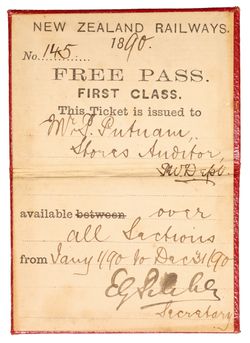 NEW ZEALAND RAILWAYS.
1890.
No. 145
FREE PASS.
FIRST CLASS.
This Ticket is issued to
Mr. J. Putnam,
Stores Auditor,
available between over
all Sections
from Jany 1/90 to Dec 31/90
Secretary